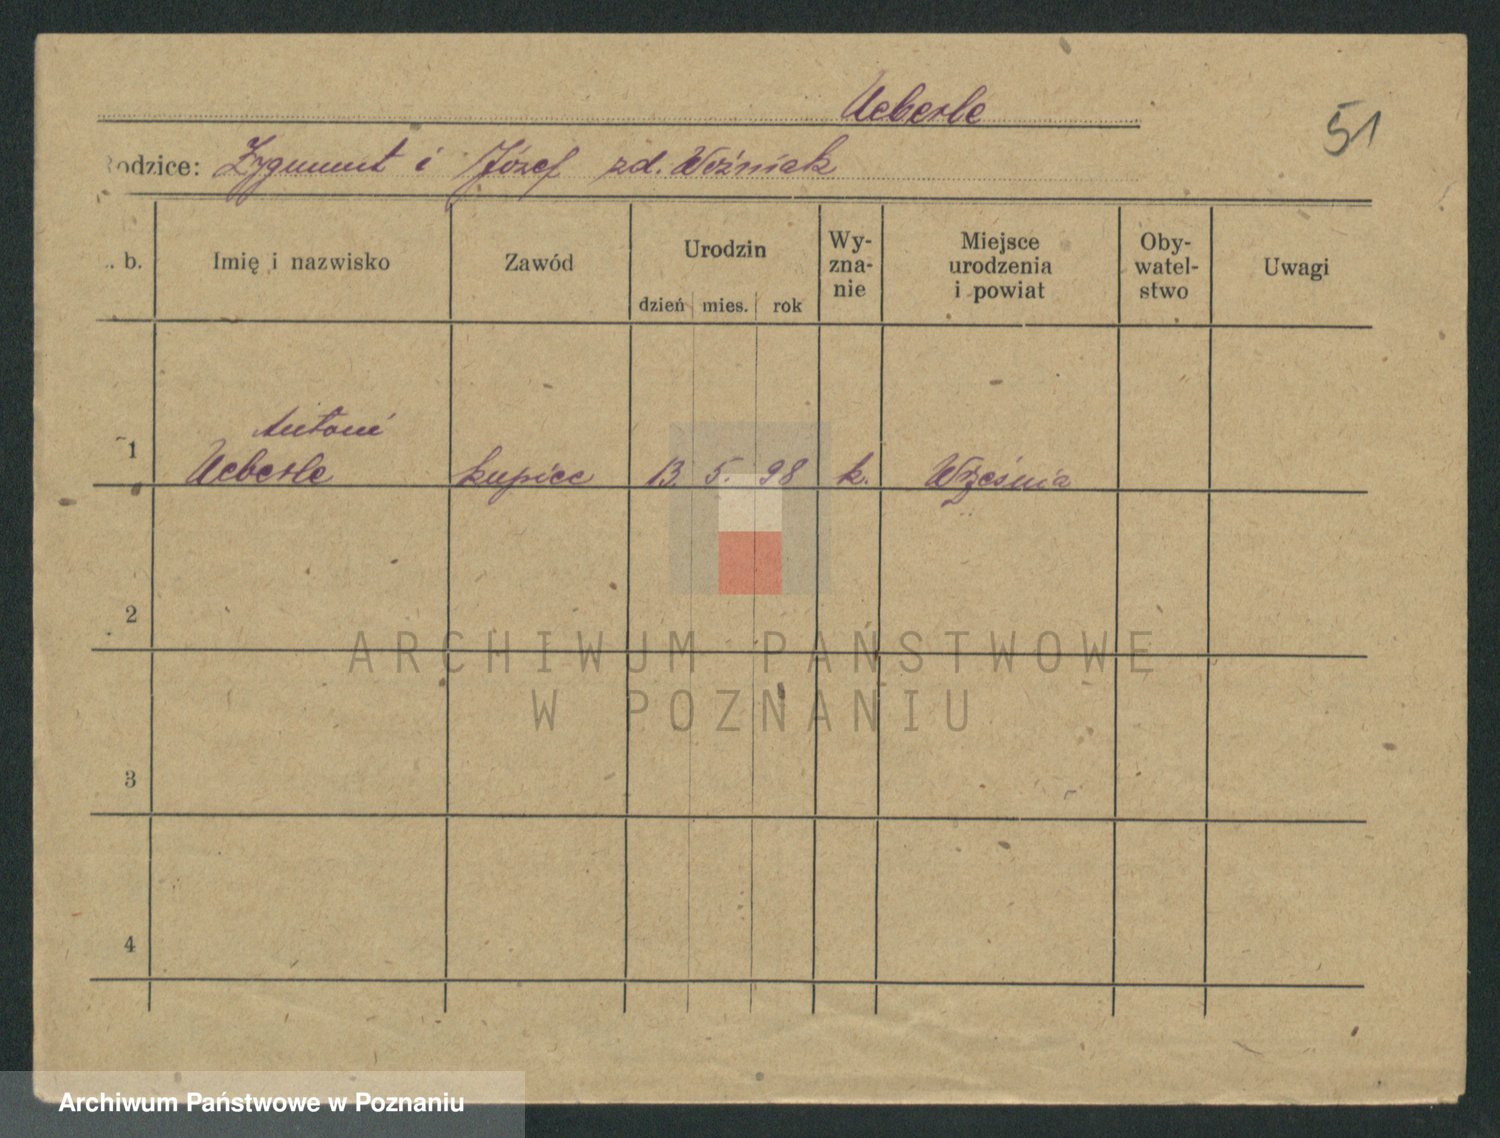 Ueberle
51
Rodzice: Zygmunt i Józef zd. Woźniak
. b. Imię i nazwisko Zawód Urodzin dzień mies. rok Wy-zna-nie Miejsce urodzenia i powiat Oby-watel-stwo Uwagi
Antoni
1 Ueberle kupiec 13. 5. 98 k. Września
2
ARCHIWUM PAŃSTWOWE
W POZNANIU
3
4
Archiwum Państwowe w Poznaniu